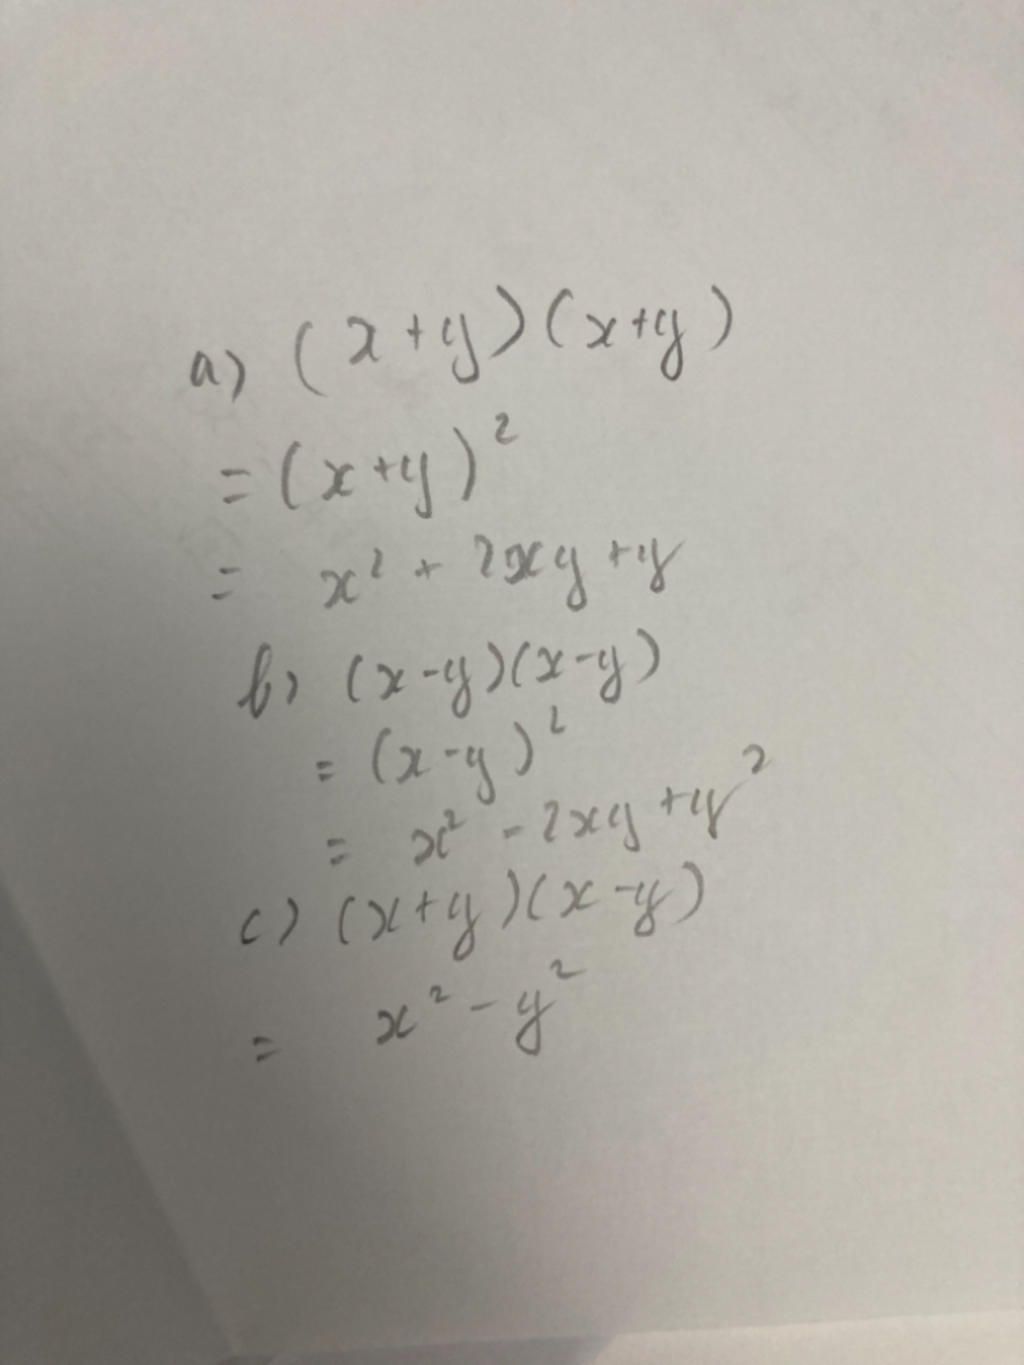 a) (x+y)(x+y)
= (x+y)²
= x² + 2xy + y
b) (x-y)(x-y)
= (x-y)²
= x² - 2xy + y²
c) (x+y)(x-y)
= x² - y²